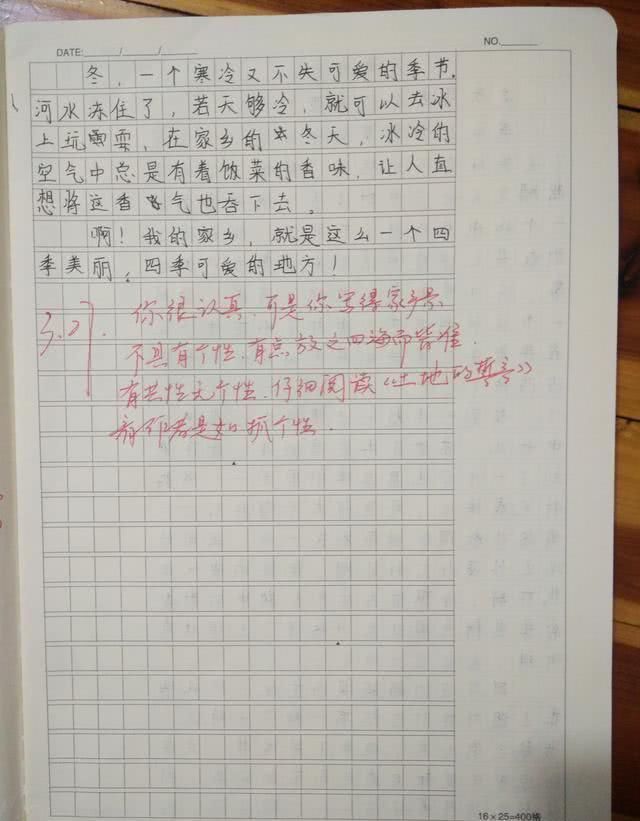 DATE: / /
NO.
冬,一个寒冷又不失可爱的季节.
河水冻住了,若天够冷,就可以去冰
上玩耍,在家乡的冬天,冰冷的
空气中总是有着饭菜的香味,让人直
想将这香气也吞下去。
啊!我的家乡,就是这么一个四
季美丽,四季可爱的地方!
3.27.
你很认真.可是你写得家乡景
不具有个性.有点放之四海而皆准.
有共性无个性.仔细阅读《土地的誓言》
看作者是如抓个性.
16×25=400格